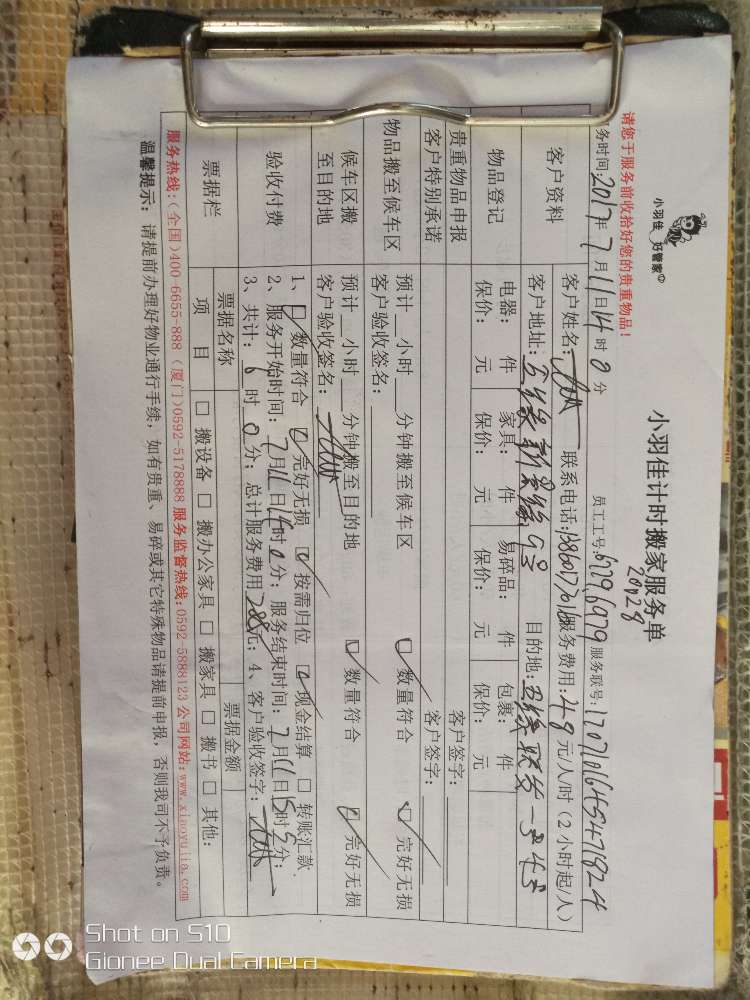 小羽佳 好管家
小羽佳计时搬家服务单
请您于服务前收拾好您的贵重物品!
员工工号: 6779,6979 服务联号: 1707101645471824
20428
务时间: 2017年7月11日14时0分
客户资料 客户姓名: 联系电话: 服务费用: 48元/人/时(2小时起/人)
客户地址: 目的地:
物品登记 电器: 件 家具: 件 易碎品: 件 包裹: 件
保价: 元 保价: 元 保价: 元 保价: 元
贵重物品申报 客户签字:
客户特别承诺 客户签字:
物品搬至候车区 预计__小时__分钟搬至候车区 数量符合 完好无损
客户验收签名:
候车区搬至目的地 预计__小时__分钟搬至目的地 数量符合 完好无损
客户验收签名:
验收付费 1、 数量符合 完好无损 按需归位 现金结算 转账汇款
2、服务开始时间: 7月11日14时0分; 服务结束时间: 7月11日15时 分;
3、共计: 时0分; 总计服务费用288元; 4、客户验收签字:
票据栏 票据名称 票据金额
项目 搬设备 搬办公家具 搬家具 搬书 其他:
服务热线:(全国)400-6655-888 (厦门)0592-5178888 服务监督热线:0592-5888123 公司网站:www.xiaoyujia.com
温馨提示: 请提前办理好物业通行手续, 如有贵重、易碎或其它特殊物品请提前申报, 否则我司不予负责。
Shot on S10
Gionee Dual Camera